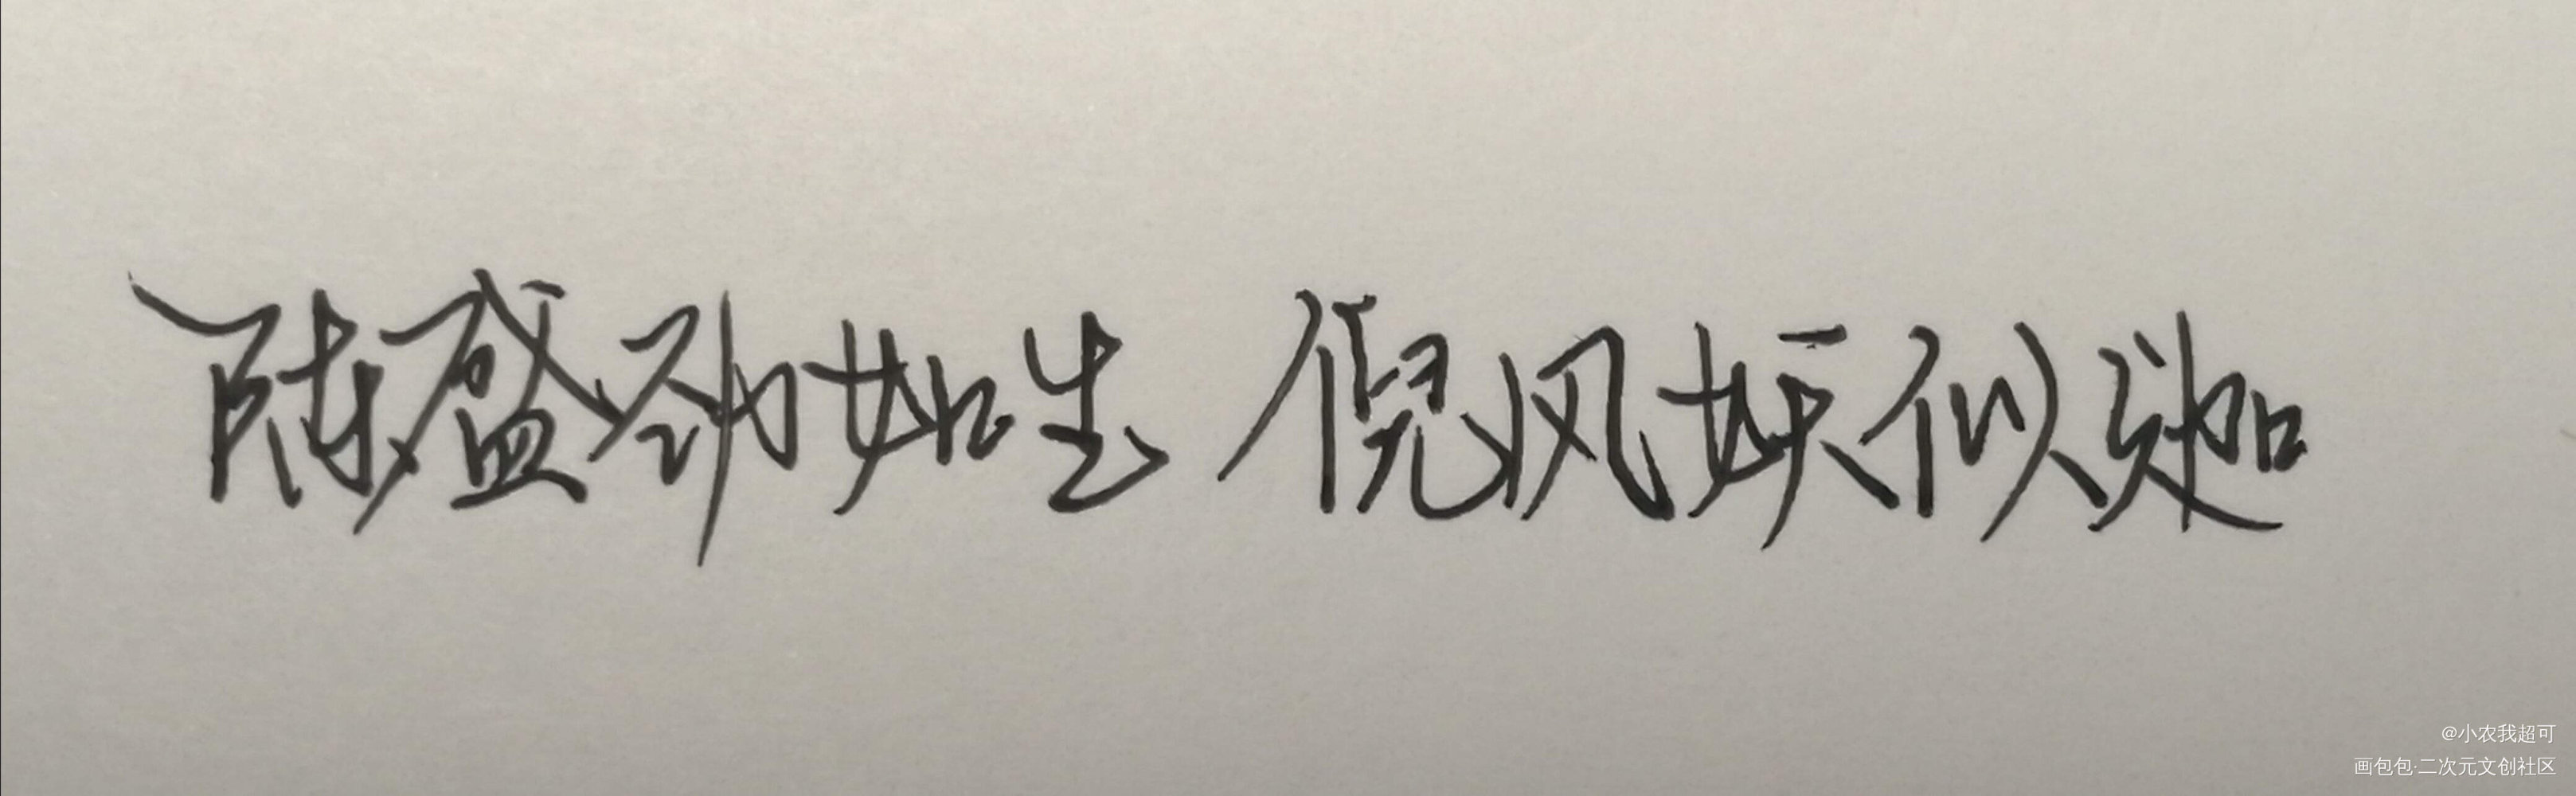 陈盛劲如生 倪风妖似迦
@小农我超可
画包包·二次元文创社区